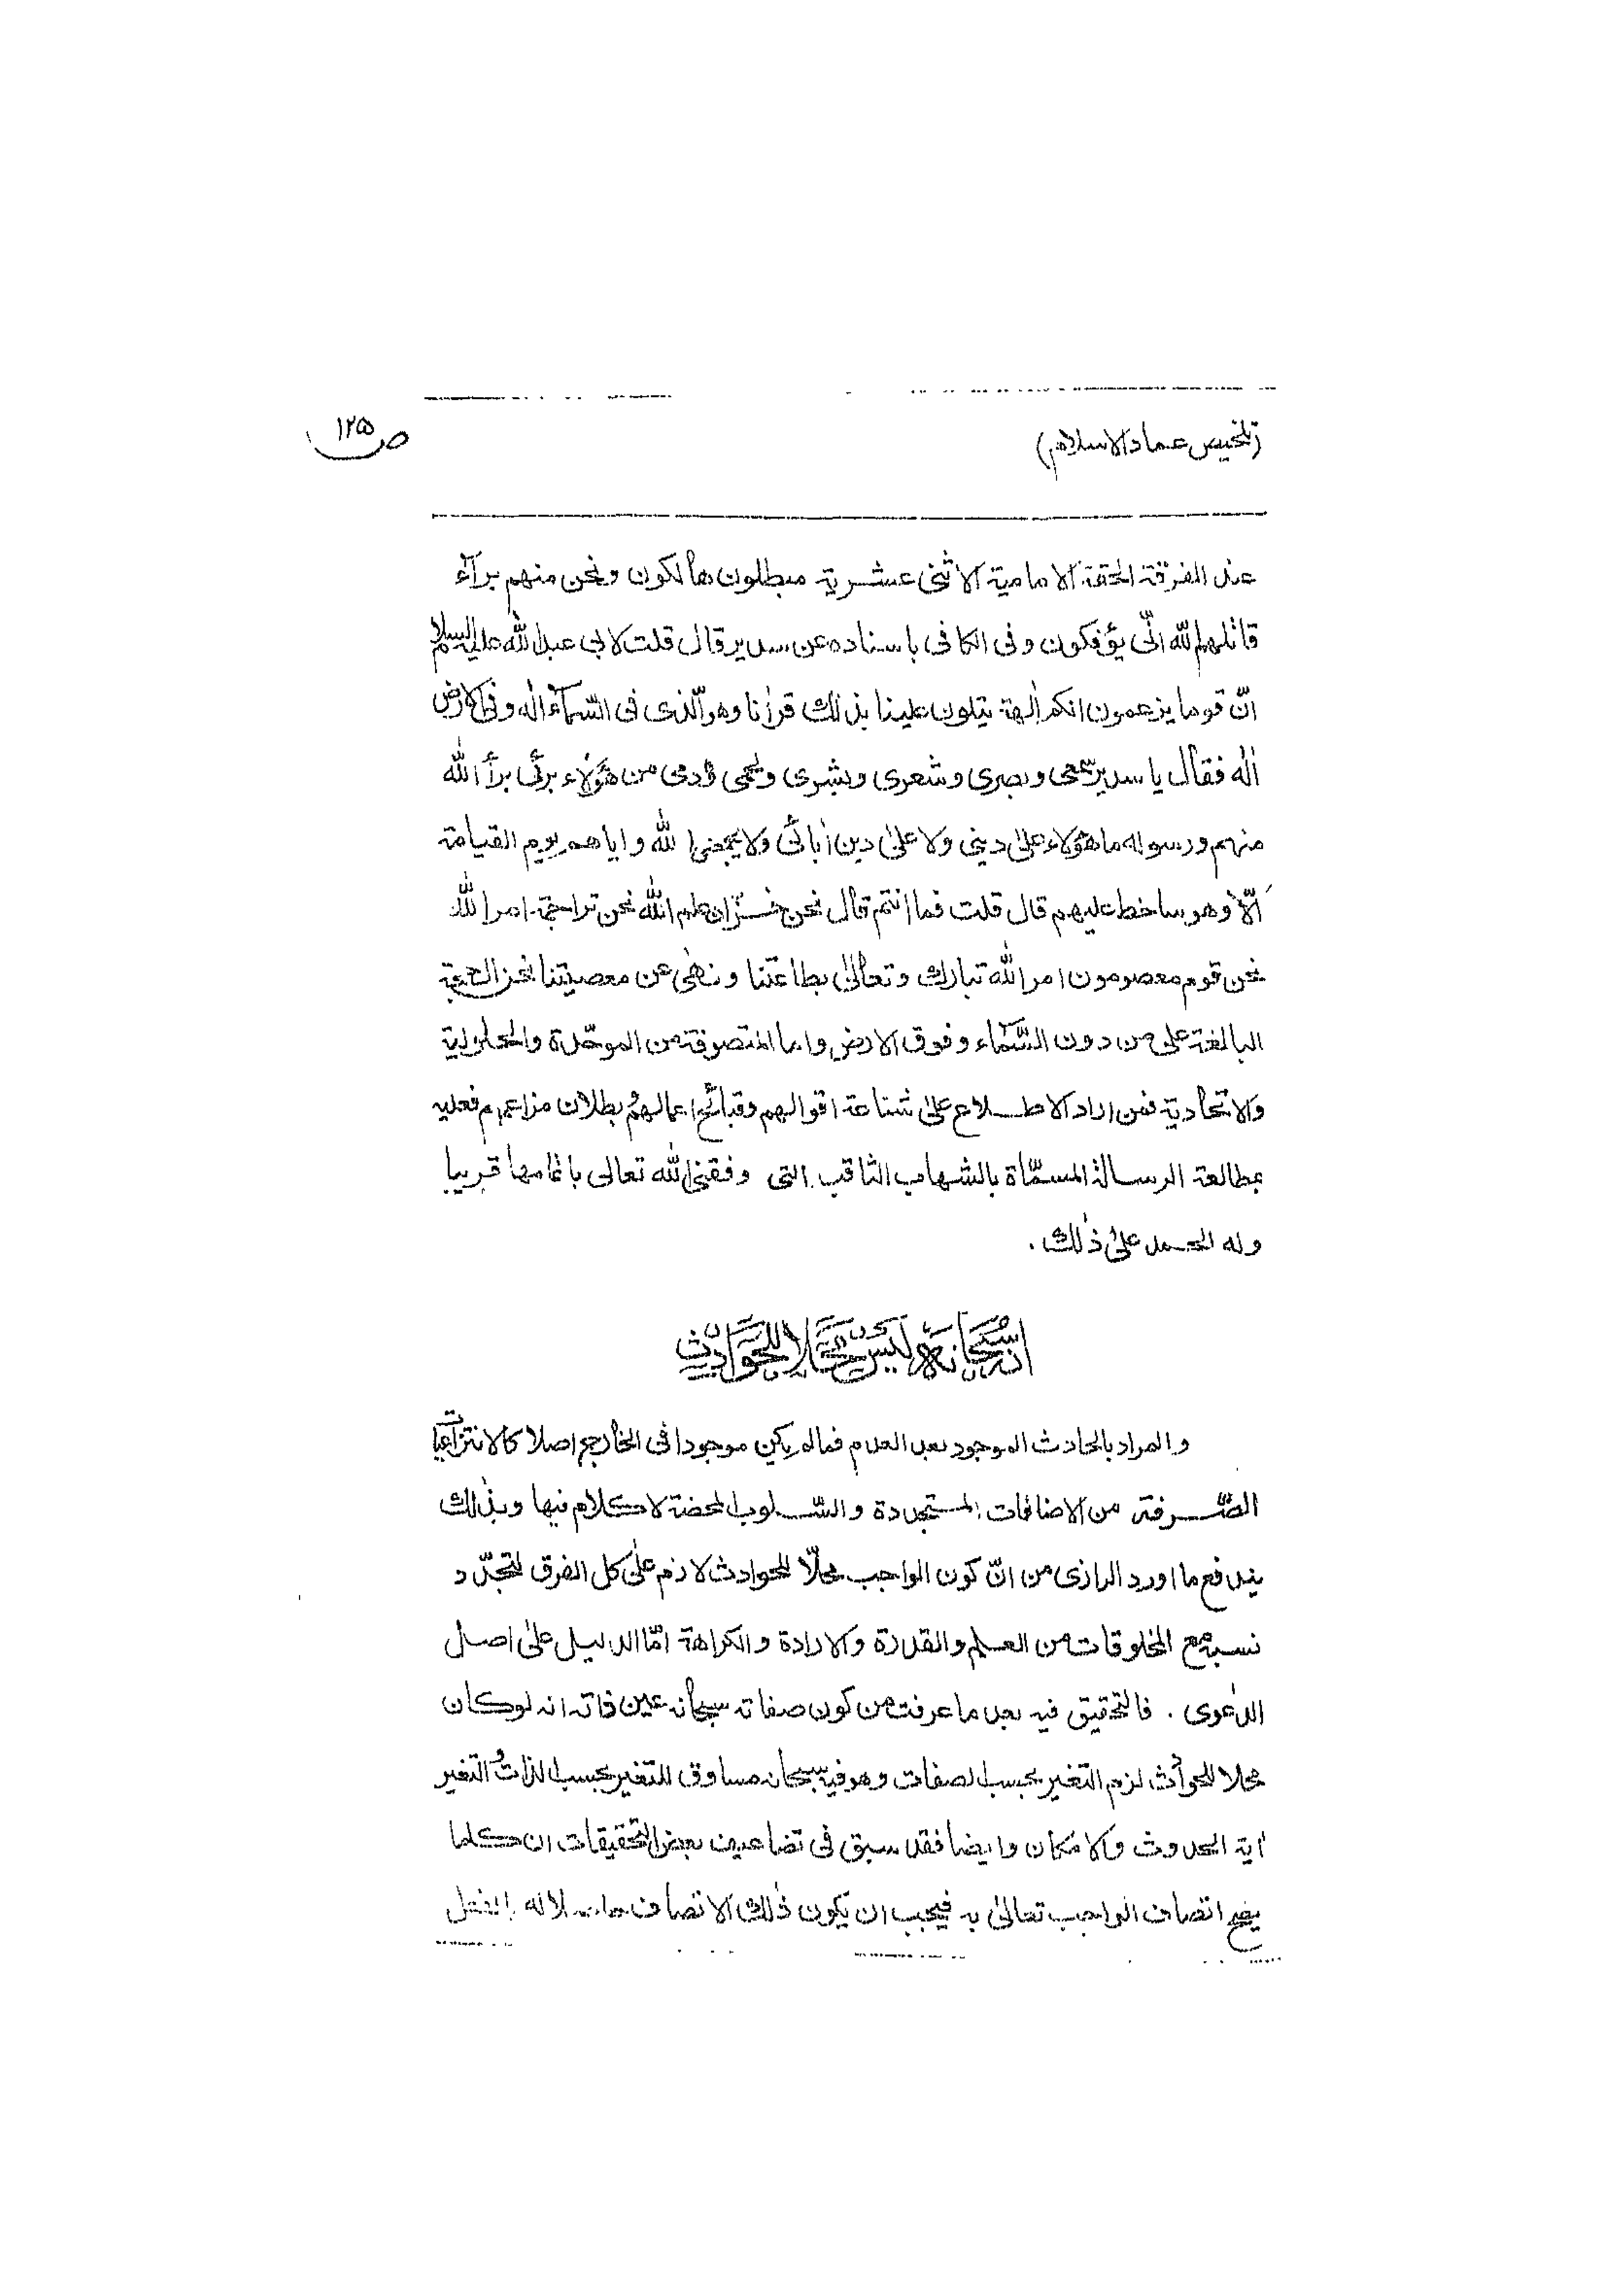 (تلخیص عماد الاسلام)
ص ۱۲۵
عند الفرقة المحقة الامامية الاثنى عشرية مبطلون هالكون ونحن منهم برآء
قاتلهم الله انّى يؤفكون وفى الكافى باسناده عن سدير قال قلت لابى عبد الله عليه السلام
انّ قوما يزعمون انكم اٰلهة يتلون علينا بذلك قراٰنا وهو الّذى فى السّماء اله وفى الارض
اله فقال يا سدير سمعى وبصرى وشعرى وبشرى ولحمى ودمى من هؤلاء برئى برأ الله
منهم ورسوله ما هؤلاء على دينى ولا على دين اٰبائى ولا يجمعنى الله واياهم يوم القيامة
الّا وهو ساخط عليهم قال قلت فما انتم قال نحن خزّان علم الله نحن تراجمة امر الله
نحن قوم معصومون امر الله تبارك وتعالى بطاعتنا ونهى عن معصيتنا نحن الحجة
البالغة على من دون السّماء وفوق الارض واما المتصوفة من الموحّدة والحلولية
والاتحادية فمن اراد الاطلاع على شناعة اقوالهم وقبائح اعمالهم وبطلان مزاعمهم فعليه
بمطالعة الرسالة المسمّاة بالشهاب الثاقب التى وفقنى الله تعالى باتمامها قريبا
وله الحمد على ذٰلك .
انه سُبحانه ليس محلا للحوادث
والمراد بالحادث الموجود بعد العدم فما لم يكن موجودا فى الخارج اصلا كالانتزاعيات
الصّرفة من الاضافات المتجددة والسّلوب المحضة لا كلام فيها وبذلك
يندفع ما اورد الرازى من انّ كون الواجب محلّا للحوادث لازم على كل الفرق لتجدّد
نسبة مع المخلوقات من العلم والقدرة والارادة والكراهة امّا الدليل على اصل
الدعوى . فالتحقيق فيه بعد ما عرفت من كون صفاته سبحانه عين ذاته انه لو كان
محلا للحوادث لزم التغير بحسب الصفات وهو فيه سبحانه مساوق للتغير بحسب الذات والتغير
اٰية الحدوث والامكان وايضا فقد سبق فى تضاعيف بعض التحقيقات ان كلما
يصح اتصاف الواجب تعالى به فيجب ان يكون ذٰلك الاتصاف حاصلا له بالفعل